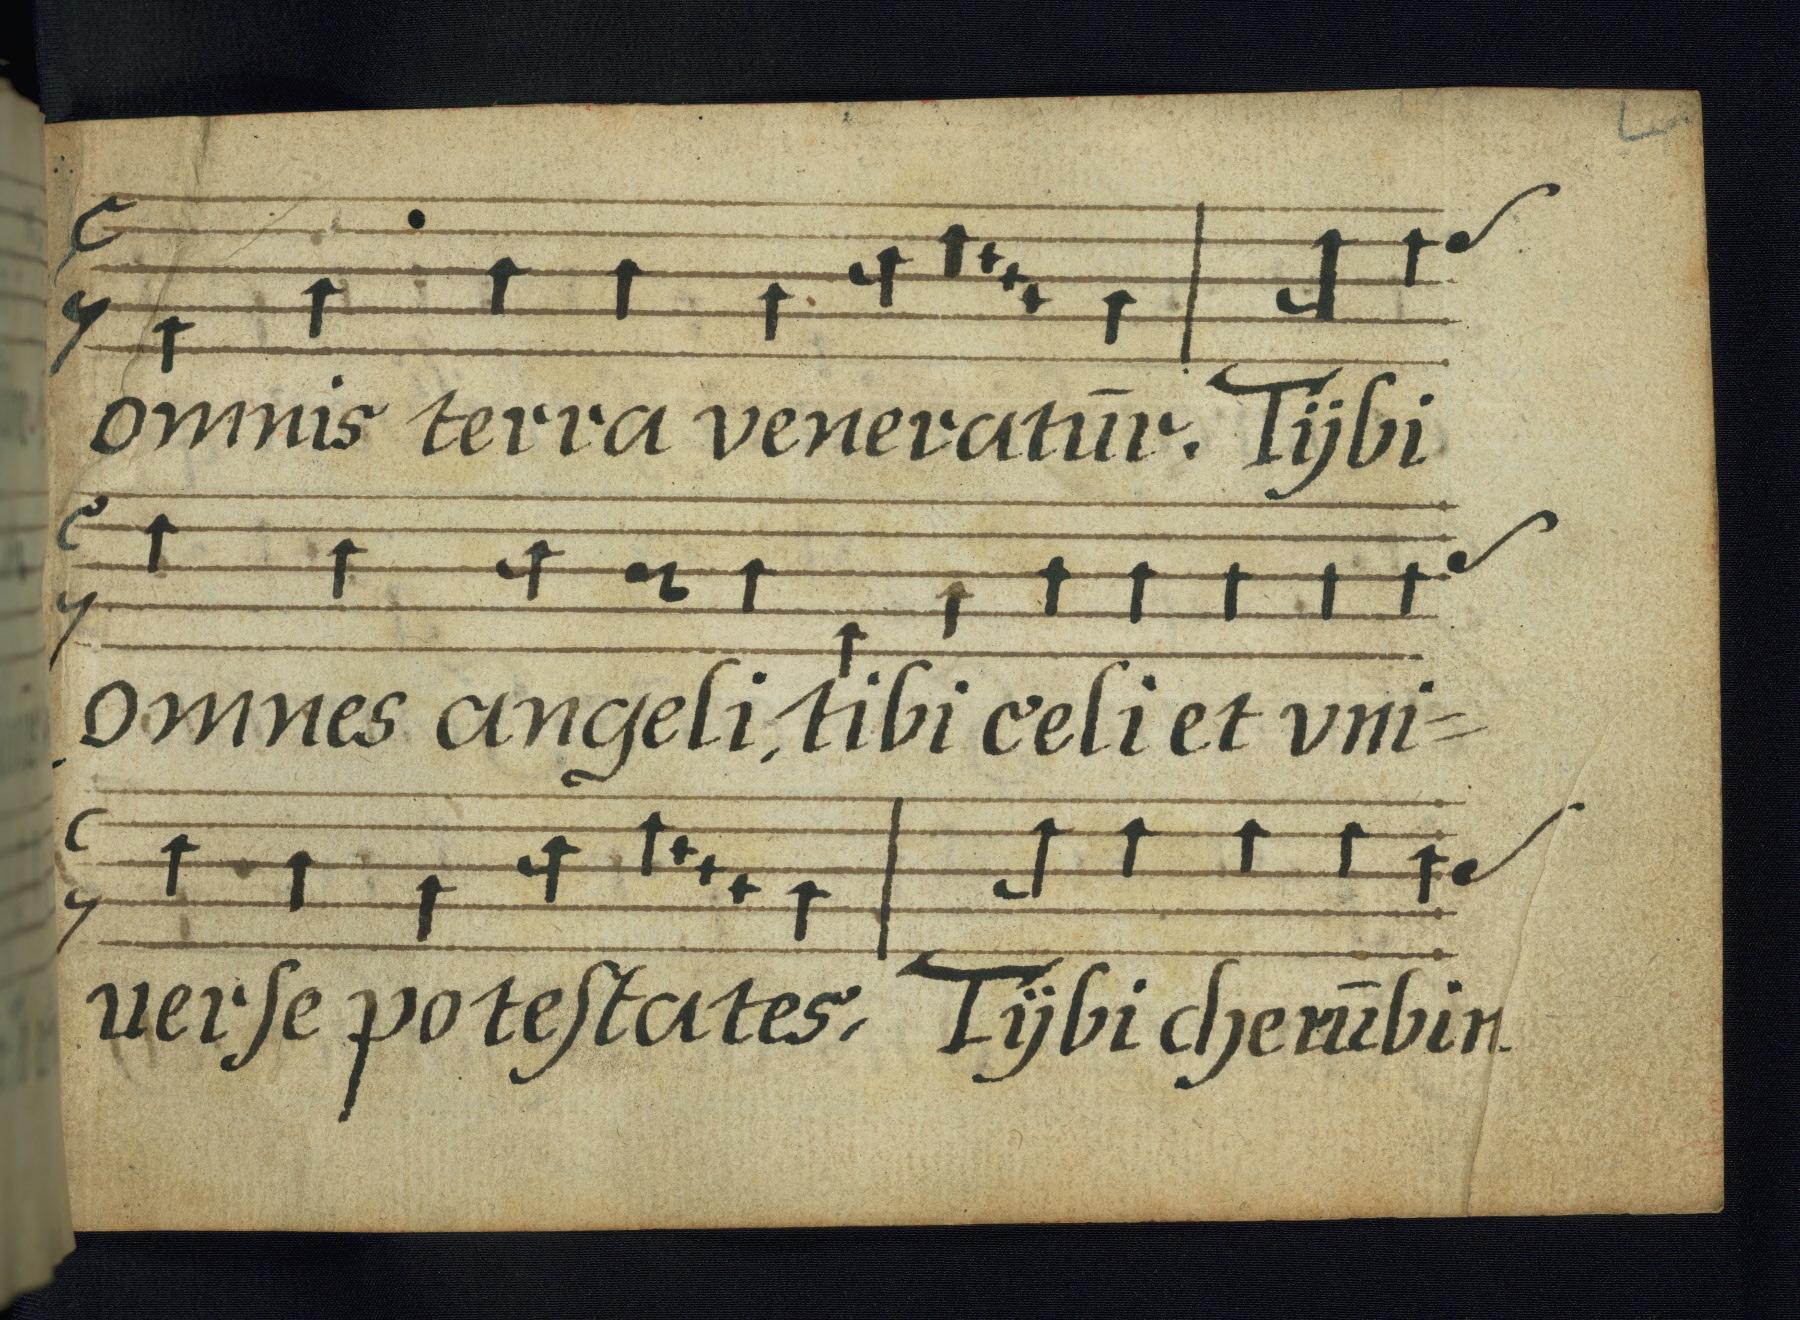 omnis terra veneratūr. Tÿbi
omnes angeli, tibi celi et vni=
uerſe poteſtates. Tÿbi cherūbin